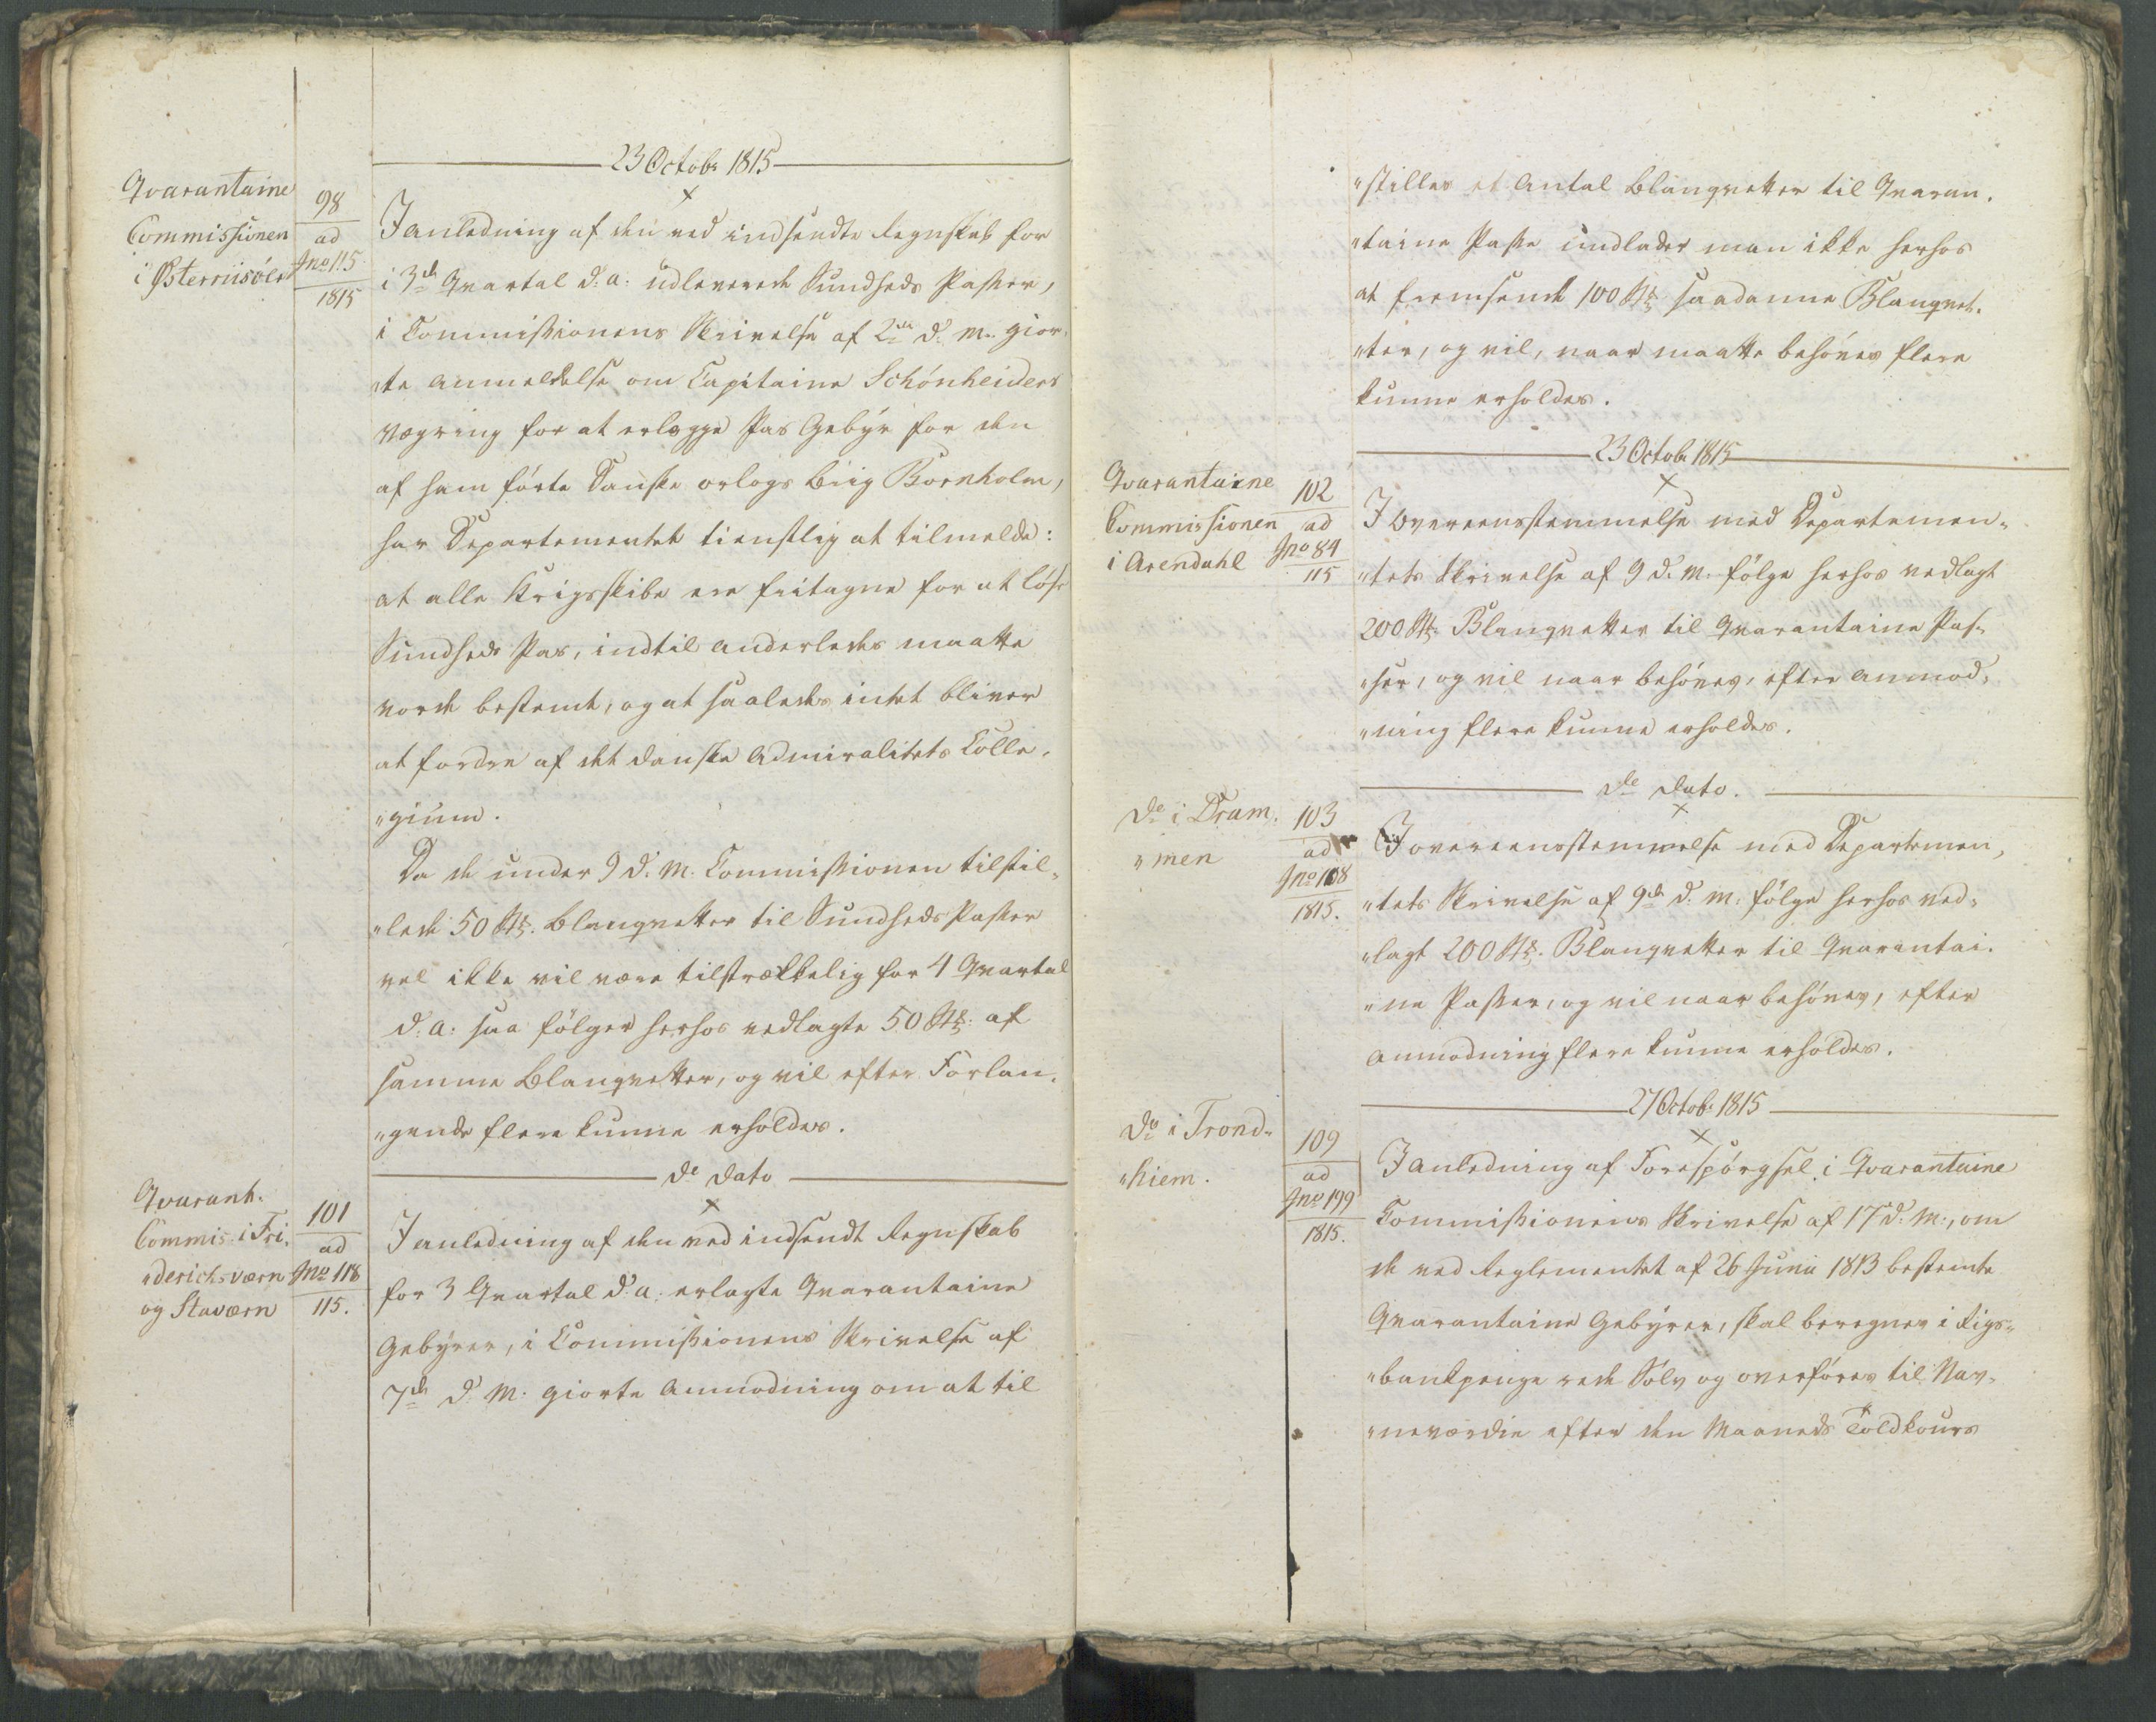 23 Octobr 1815
Qvarantaine
Commissionen
i Østerriisöer
98
ad
Jno 115
1815
I anledning af den ved indsendte Regnskab for
i 3de Qvartal d: a: udleverede Sundheds Passer,
i Commissionens Skrivelse af 2den d: M: gior„
„te anmeldelse om Capitaine Schönheiders
vægring for at erlægge Pas Gebyr for den
af ham förte Danske orlogs Briig Bornholm,
har Departementet tienstlig at tilmelde:
at alle Krigsskibe ere fritagne for at löse
Sundheds Pas, indtil anderledes maatte
vorde bestemt, og at saaledes intet bliver
at fordre af det danske Admiralitets Colle„
„gium.
Da de under 9 d: M: Commissionen tilstil„
„lede 50 Stk. Blanqvetter til Sundheds Passer
vel ikke vil være tilstrækkelig for 4 Qvartal
d: a: saa fölger herhos vedlagte 50 Stk. af
samme Blanqvetter, og vil efter Forlan„
„gende flere kunne erholdes.
de dato
Qvarant.
Commis: i Fri„
„derichsværn
og Staværn
101
ad
Jno 118
115.
I anledning af den ved indsendt Regnskab
for 3 Qvartal d: a: erlagte Qvarantaine
Gebyrer, i Commissionens Skrivelse af
7de d: M: giorte Anmodning om at til
„stilles et Antal Blanqvetter til Qvaran„
„taine Passe undlader man ikke herhos
at fremsende 100 Stk saadanne Blanqvet„
„ter, og vil, naar maatte behöves flere
kunne erholdes.
23 Octobr 1815
Qvarantaine
Commissionen
i Arendahl
102
ad
Jno 84
115
I Overeensstemmelse med Departemen„
„tets Skrivelse af 9 d: M: fölge herhos vedlagt
200 Stk. Blanqvetter til Qvarantaine Pas„
„ser, og vil naar behöves, efter anmod„
„ning flere kunne erholdes.
de dato.
do i Dram„
„men
103
ad
Jno 108
1815.
I overeensstemmelse med Departemen„
„tets Skrivelse af 9de d: M: fölge herhos ved„
„lagt 200 Stk. Blanqvetter til Qvarantai„
„ne Passer, og vil naar behöves, efter
anmodning flere kunne erholdes.
27 Octobr 1815
do i Trond„
„hiem.
109
ad
Jno 199
1815.
I anledning af Forespörgsel i Qvarantaine
Commissionens Skrivelse af 17 d: M:, om
de ved Reglementet af 26 Junii 1813 bestemte
Qvarantaine Gebyrer, skal beregnes i Rigs„
„bankpenge rede Sölv og overföres til Nav„
„neværdie efter den Maaneds Toldkours